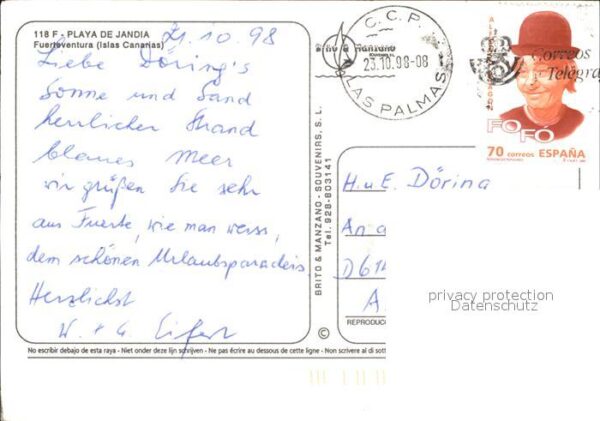 118 F - PLAYA DE JANDIA
Fuerteventura (Islas Canarias)
21.10.98
Liebe Döring's
Sonne und Sand
herrlicher Strand
blaues Meer
wir grüßen Sie sehr
aus Fuerte, wie man weiss,
dem schönen Urlaubsparadeis
Herzlichst
W. + G. Eifert
No escribir debajo de esta raya - Niet onder deze lijn schrijven - Ne pas écrire au dessous de cette ligne - Non scrivere al di sott
BRITO & MANZANO - SOUVENIRS, S. L.
Tel. 928-803141
©
C.C.P.
23.10.98-08
LAS PALMAS
Correos
Telégra
FOFÓ
70 correos ESPAÑA
H. u E. Döring
An
D61
A
privacy protection
Datenschutz
REPRODUC